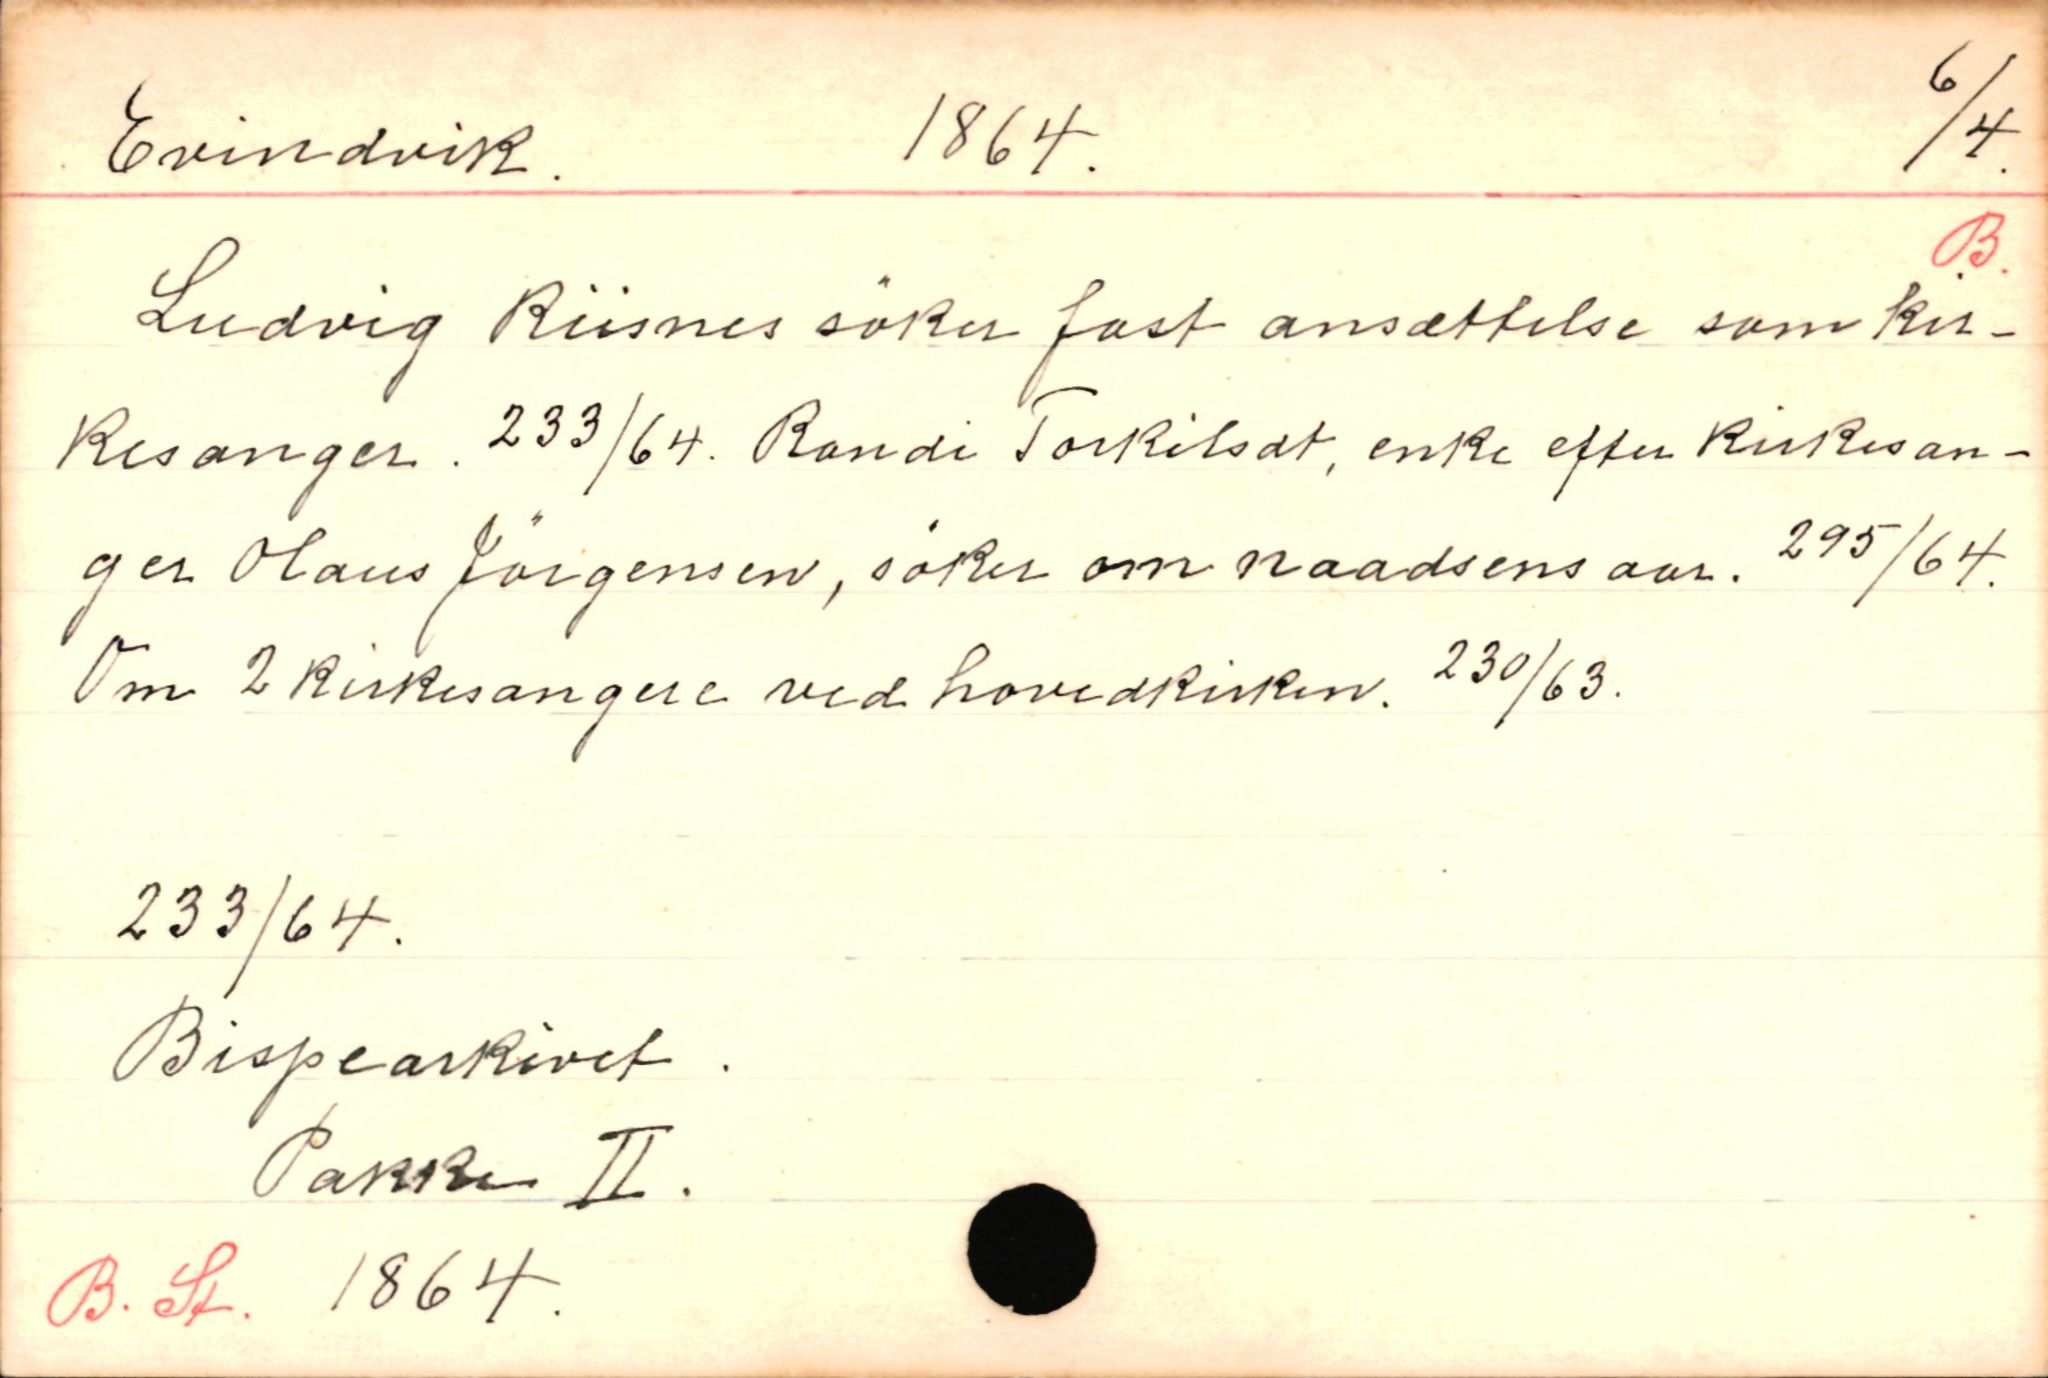 Evindvik. 1864. 6/4.
B.
Ludvig Riisnes söker fast ansættelse som kir-
kesanger. 233/64. Randi Torkilsdt, enke efter kirkesan-
ger Olaus Jörgensen, söker om naadsensaar. 295/64.
Om 2 kirkesangere ved hovedkirken. 230/63.
233/64.
Bispearkivet.
Pakke II.
B. St. 1864.